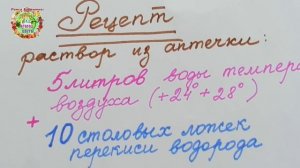 Рецепт
раствор из аптечки:
5 литров воды темпера
воздуха (+24°+28°)
+
10 столовых ложек
перекиси водорода